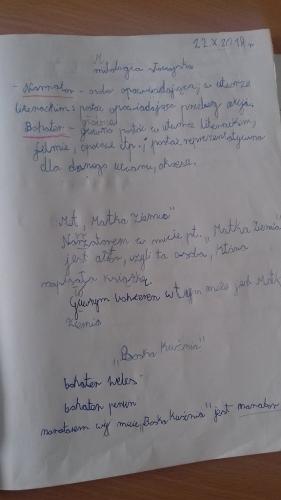 22 X 2019 r
mitologia słowiańska
- Narrator - osoba opowiadająca, w utworze
literackim: postać opowiadająca przebieg akcji,
Bohater - główna postać w utworze literackim,
filmie, operze itp.; postać reprezentatywna
dla danego utworu, okresu.
Mit "Matka Ziemia"
Narratorem w micie pt. "Matka Ziemia"
jest autor, czyli ta osoba, która
napisała książkę.
Głównym bohaterem w tym micie jest Matka
Ziemia
"Boska Kuźnia"
bohater weles -
bohater perun
narratorem w micie "Boska Kuźnia" jest narrator